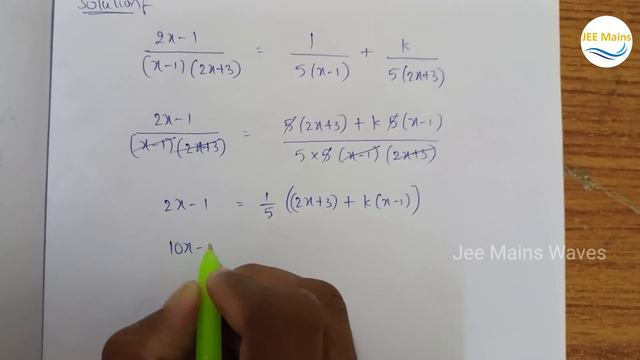 Solution:
JEE Mains
(2x-1)/((x-1)(2x+3)) = 1/(5(x-1)) + k/(5(2x+3))
(2x-1)/((x-1)(2x+3)) = (5(2x+3) + k5(x-1))/(5×5(x-1)(2x+3))
2x-1 = 1/5 ((2x+3) + k(x-1))
10x-
Jee Mains Waves